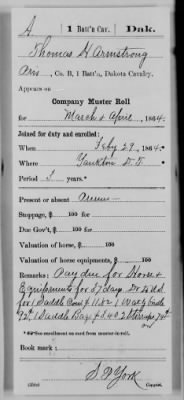 A | 1 Batt'n Cav. | Dak.
Thomas H Armstrong
, Co. B, 1 Batt'n, Dakota Cavalry.
Appears on
Company Muster Roll
for March & April, 1864.
Joined for duty and enrolled:
When Feby 29, 1864.
Where Yankton D.T.
Period 3 years.*
Present or absent
Stoppage, $ 100 for
Due Gov't, $ 100 for
Valuation of horse, $ 100
Valuation of horse equipments, $ 100
Remarks: Pay due for Horse &
Equipments for 37 days Dr to U.S.
for 1 Saddle
1 Saddle Bag 2 Stirrups
*See enrollment on card from muster-in roll.
Book mark:
S. D. York
Copyist.